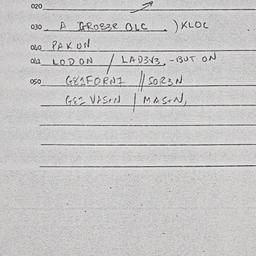 020
030 A GROEZR OLC ) KLOC
040 PAKON
041 LODON / LAD3V3. -BUT ON
050 G81FORN1 // SOR3N
G81 VASEN / MASEN,